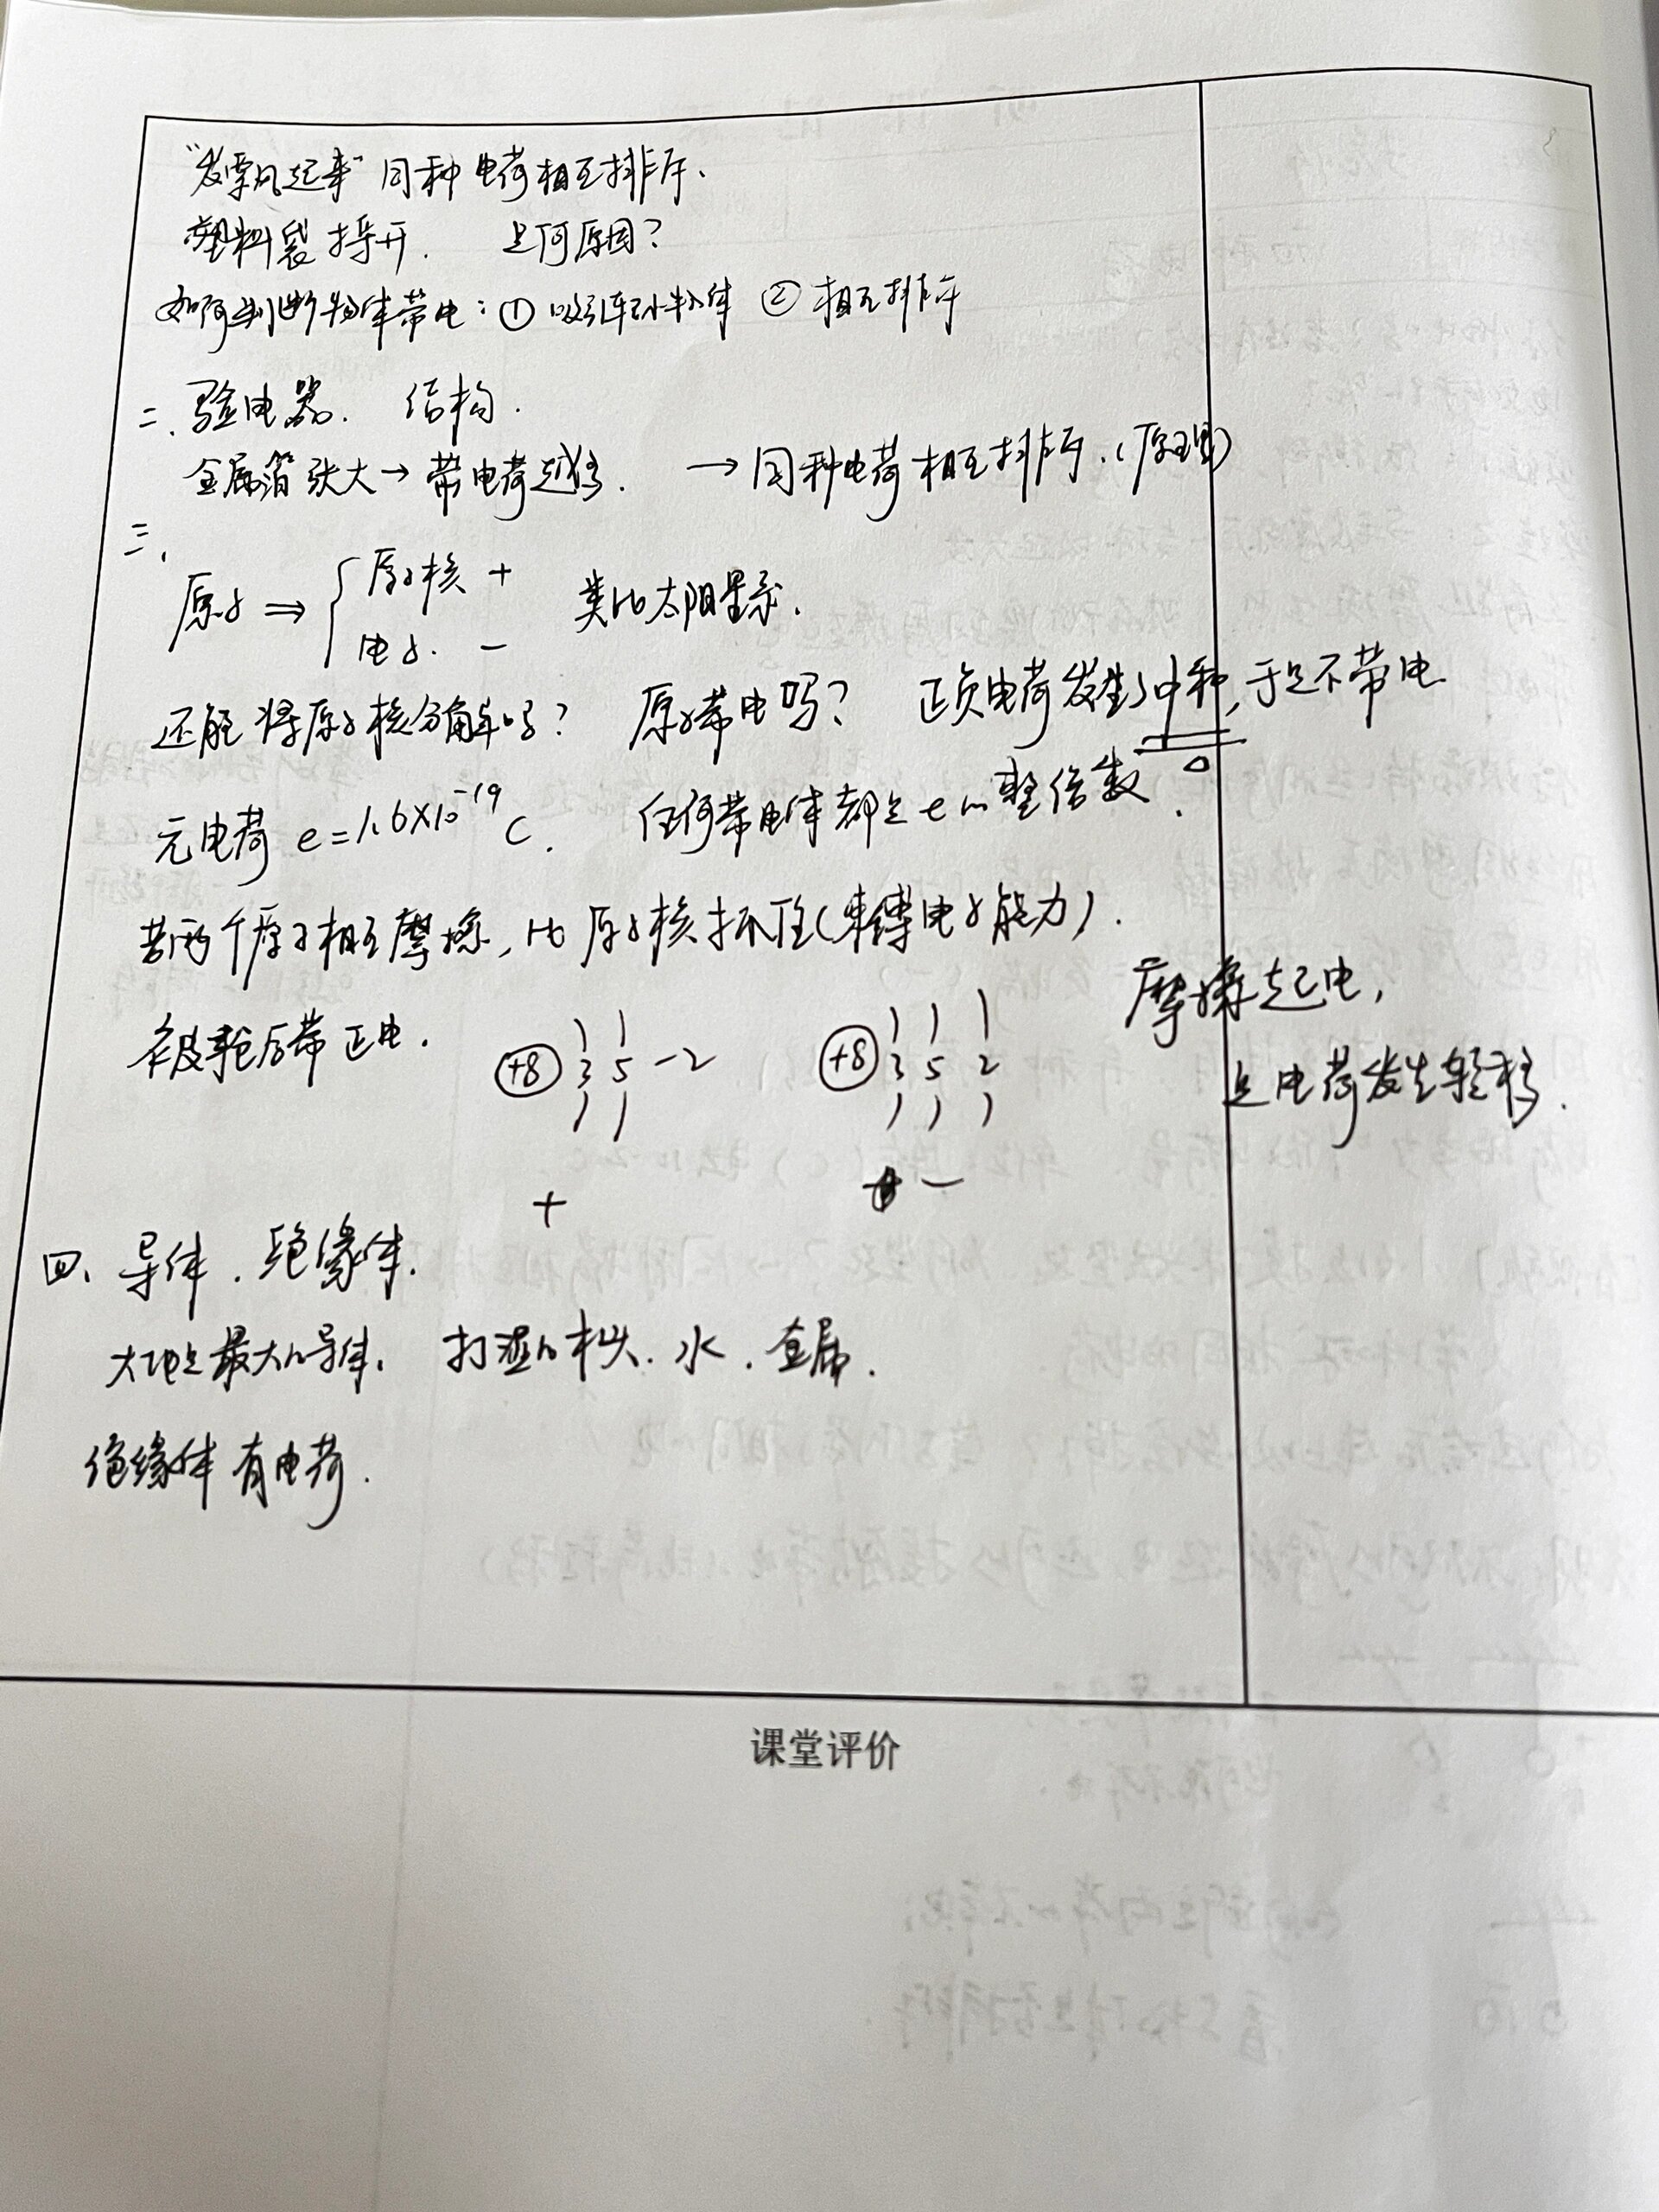 “发飘起来” 同种电荷相互排斥.
塑料袋撑开. 是何原因?
如何判断物体带电: ① 吸引轻小物体 ② 相互排斥
二. 验电器. 结构.
金属箔张大→带电荷越多. →同种电荷相互排斥.(原理)
三.
原子⇒{原子核 + 类比太阳星系.
电子. -
还能将原子核分解吗? 原子带电吗? 正负电荷发生了中和,于是不带电
0
元电荷 e=1.6×10⁻¹⁹C. 任何带电体都是e的整倍数.
若两个原子相互摩擦, 比原子核抓住(束缚电子能力).
摩擦起电,
被抢后带正电. +8 3 5 -2 +8 3 5 2
是电荷发生转移.
+ -
四、导体. 绝缘体.
大地是最大的导体. 打湿的木头. 水. 金属.
绝缘体有电荷.
课堂评价